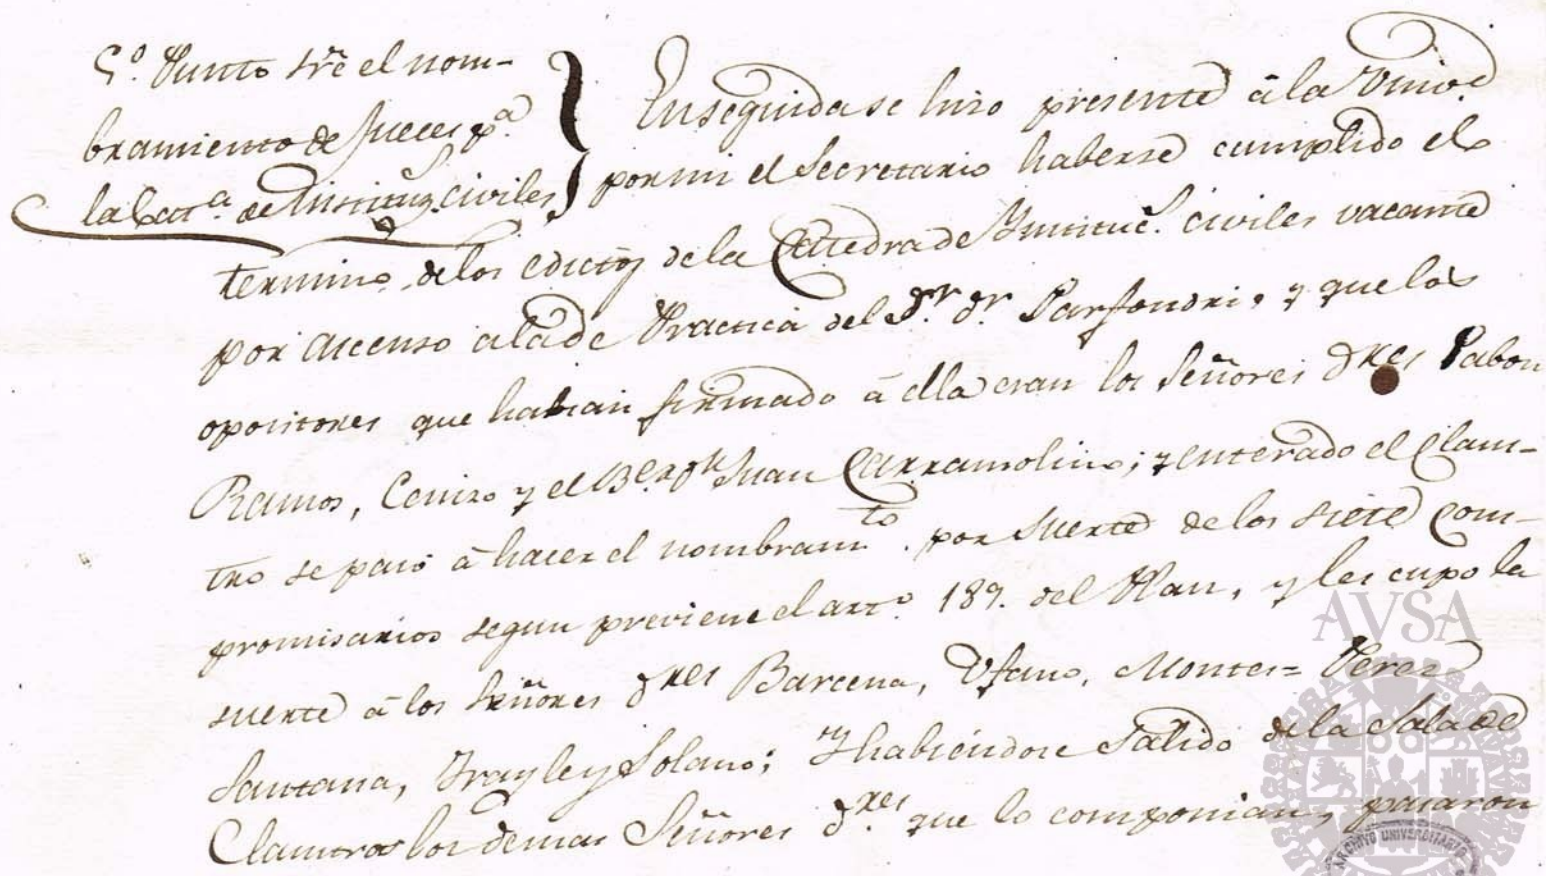 5º. Punto sre el nom-
bramiento de Jueces pª.
la Catª. de Instituz. civiles
Enseguida se hizo presente â la Univd.
por mi el Secretario haberse cumplido el
termino de los edictos de la Catedra de Ynstituc. civiles vacante
por ascenso a la de Practica del Sr. Dr. y que los
opositores que habian firmado â ella eran los Señores Dres Pabon
Ramos, Cenizo y el Br. Dn Juan Carramolino; y enterado el Claus-
tro se pasó â hacer el nombramto. por suerte de los siete com-
promisarios segun previene el arto. 189. del Plan, y les cupo la
suerte â los Señores Dres Barcena, Ufano, Montes= Perez
Santana, Frayle y Solano; Y habiéndose salido de la Sala de
Claustros los demas Señores Dres. que lo componian, pasaron
AVSA
ARCHIVO UNIVERSITARIO